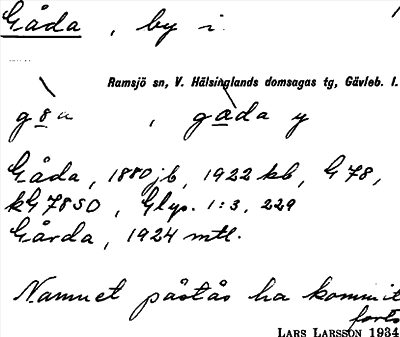 Gåda, by i
Ramsjö sn, V. Hälsinglands domsagas tg, Gävleb. l.
, gåda y
Gåda, 1880 jb, 1922 kb, G 78,
kG 78 SO, Glyp. 1:3, 229
Gårda, 1924 mtl.
Namnet påstås ha kommit
forts
LARS LARSSON 1934